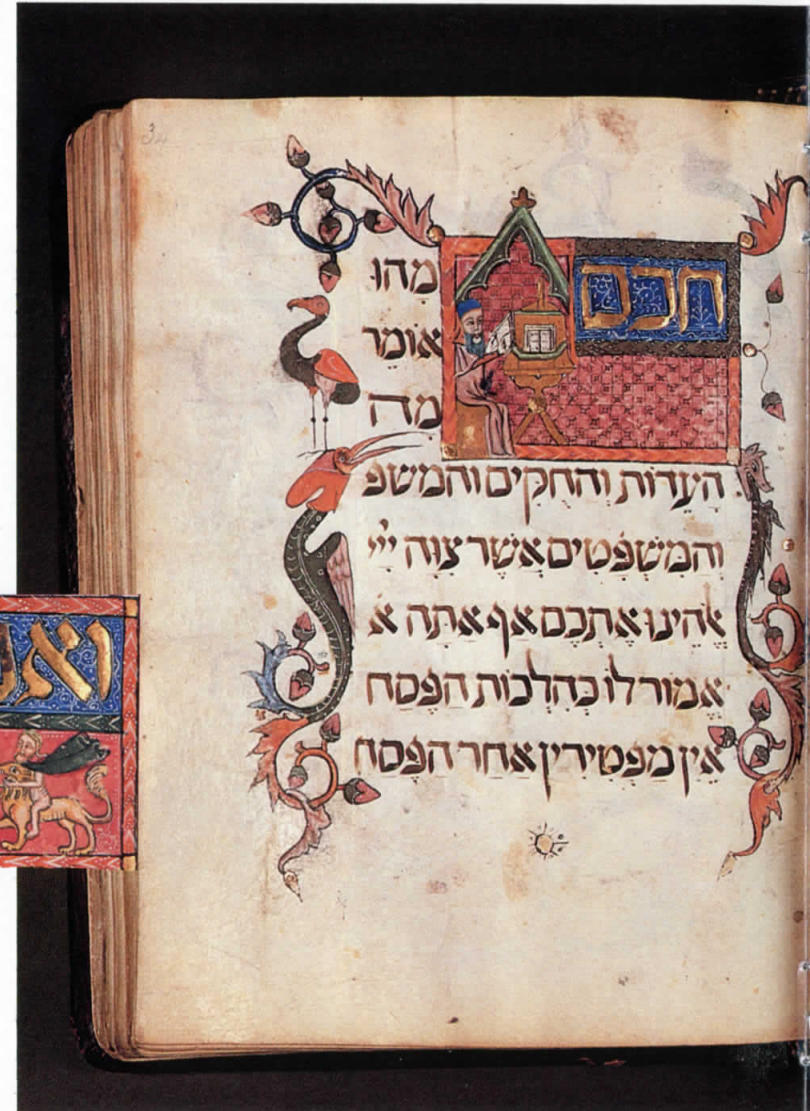 34
חכם
מהו
אומר
מה
העדות והחקים והמשפ
והמשפטים אשר צוה ייי
אלהינו אתכם אף אתה א
אמור לו כהלכות הפסח
אין מפטירין אחר הפסח